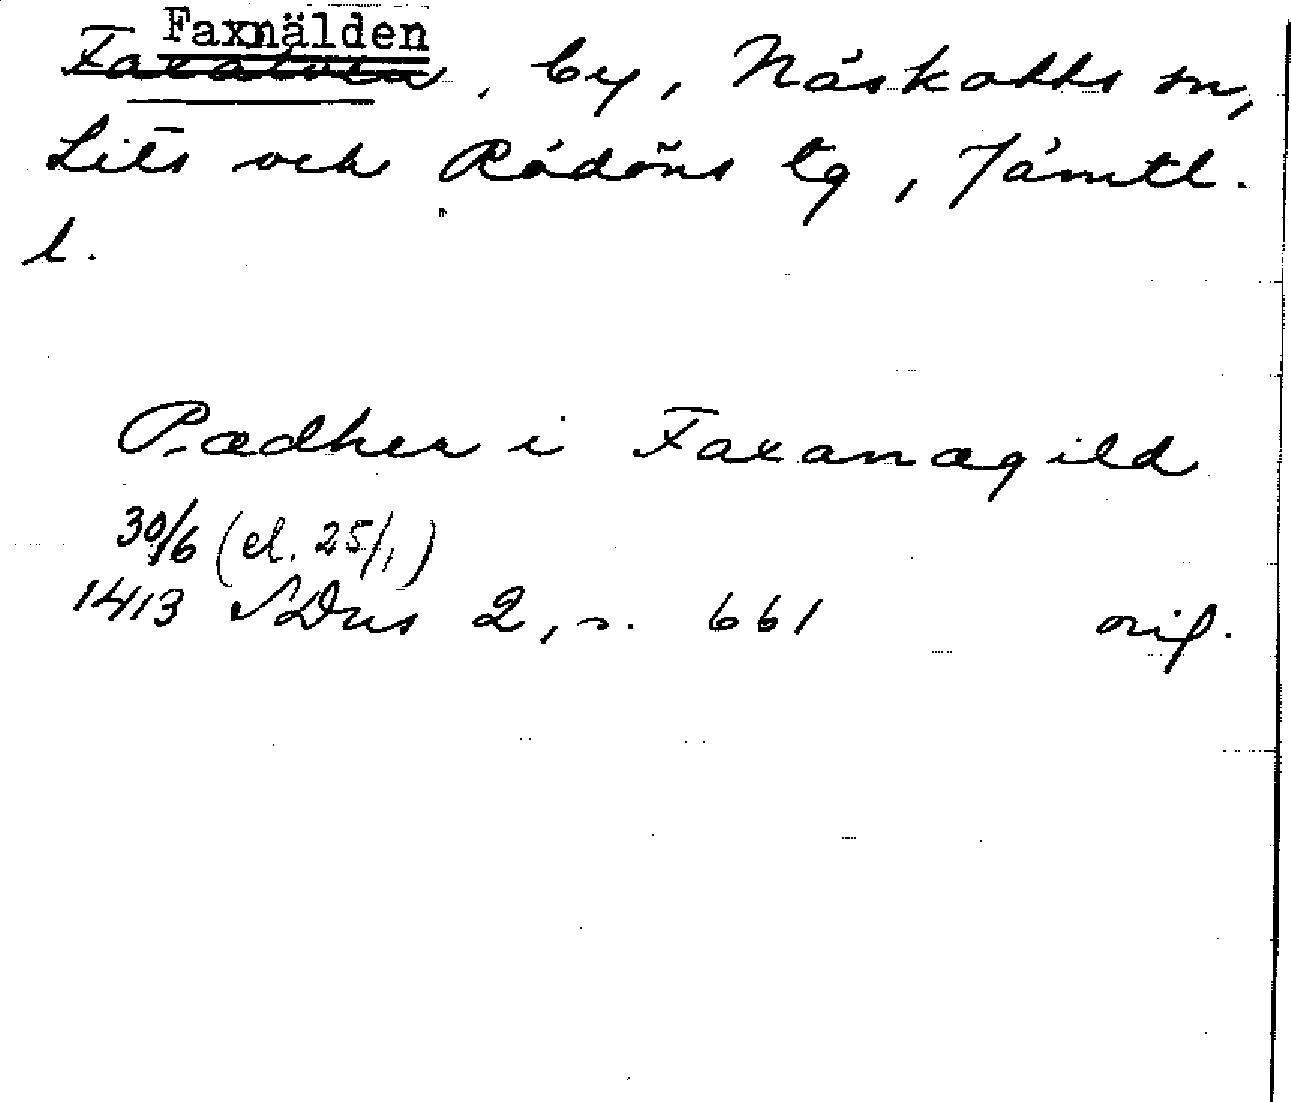 Faxnälden
, by, Näskotts sn,
Lits och Rödöns tg, Jämtl.
l.
Pædher i Faxanægild
30/6 (el. 25/1)
1413 SDns 2, s. 661 orig.